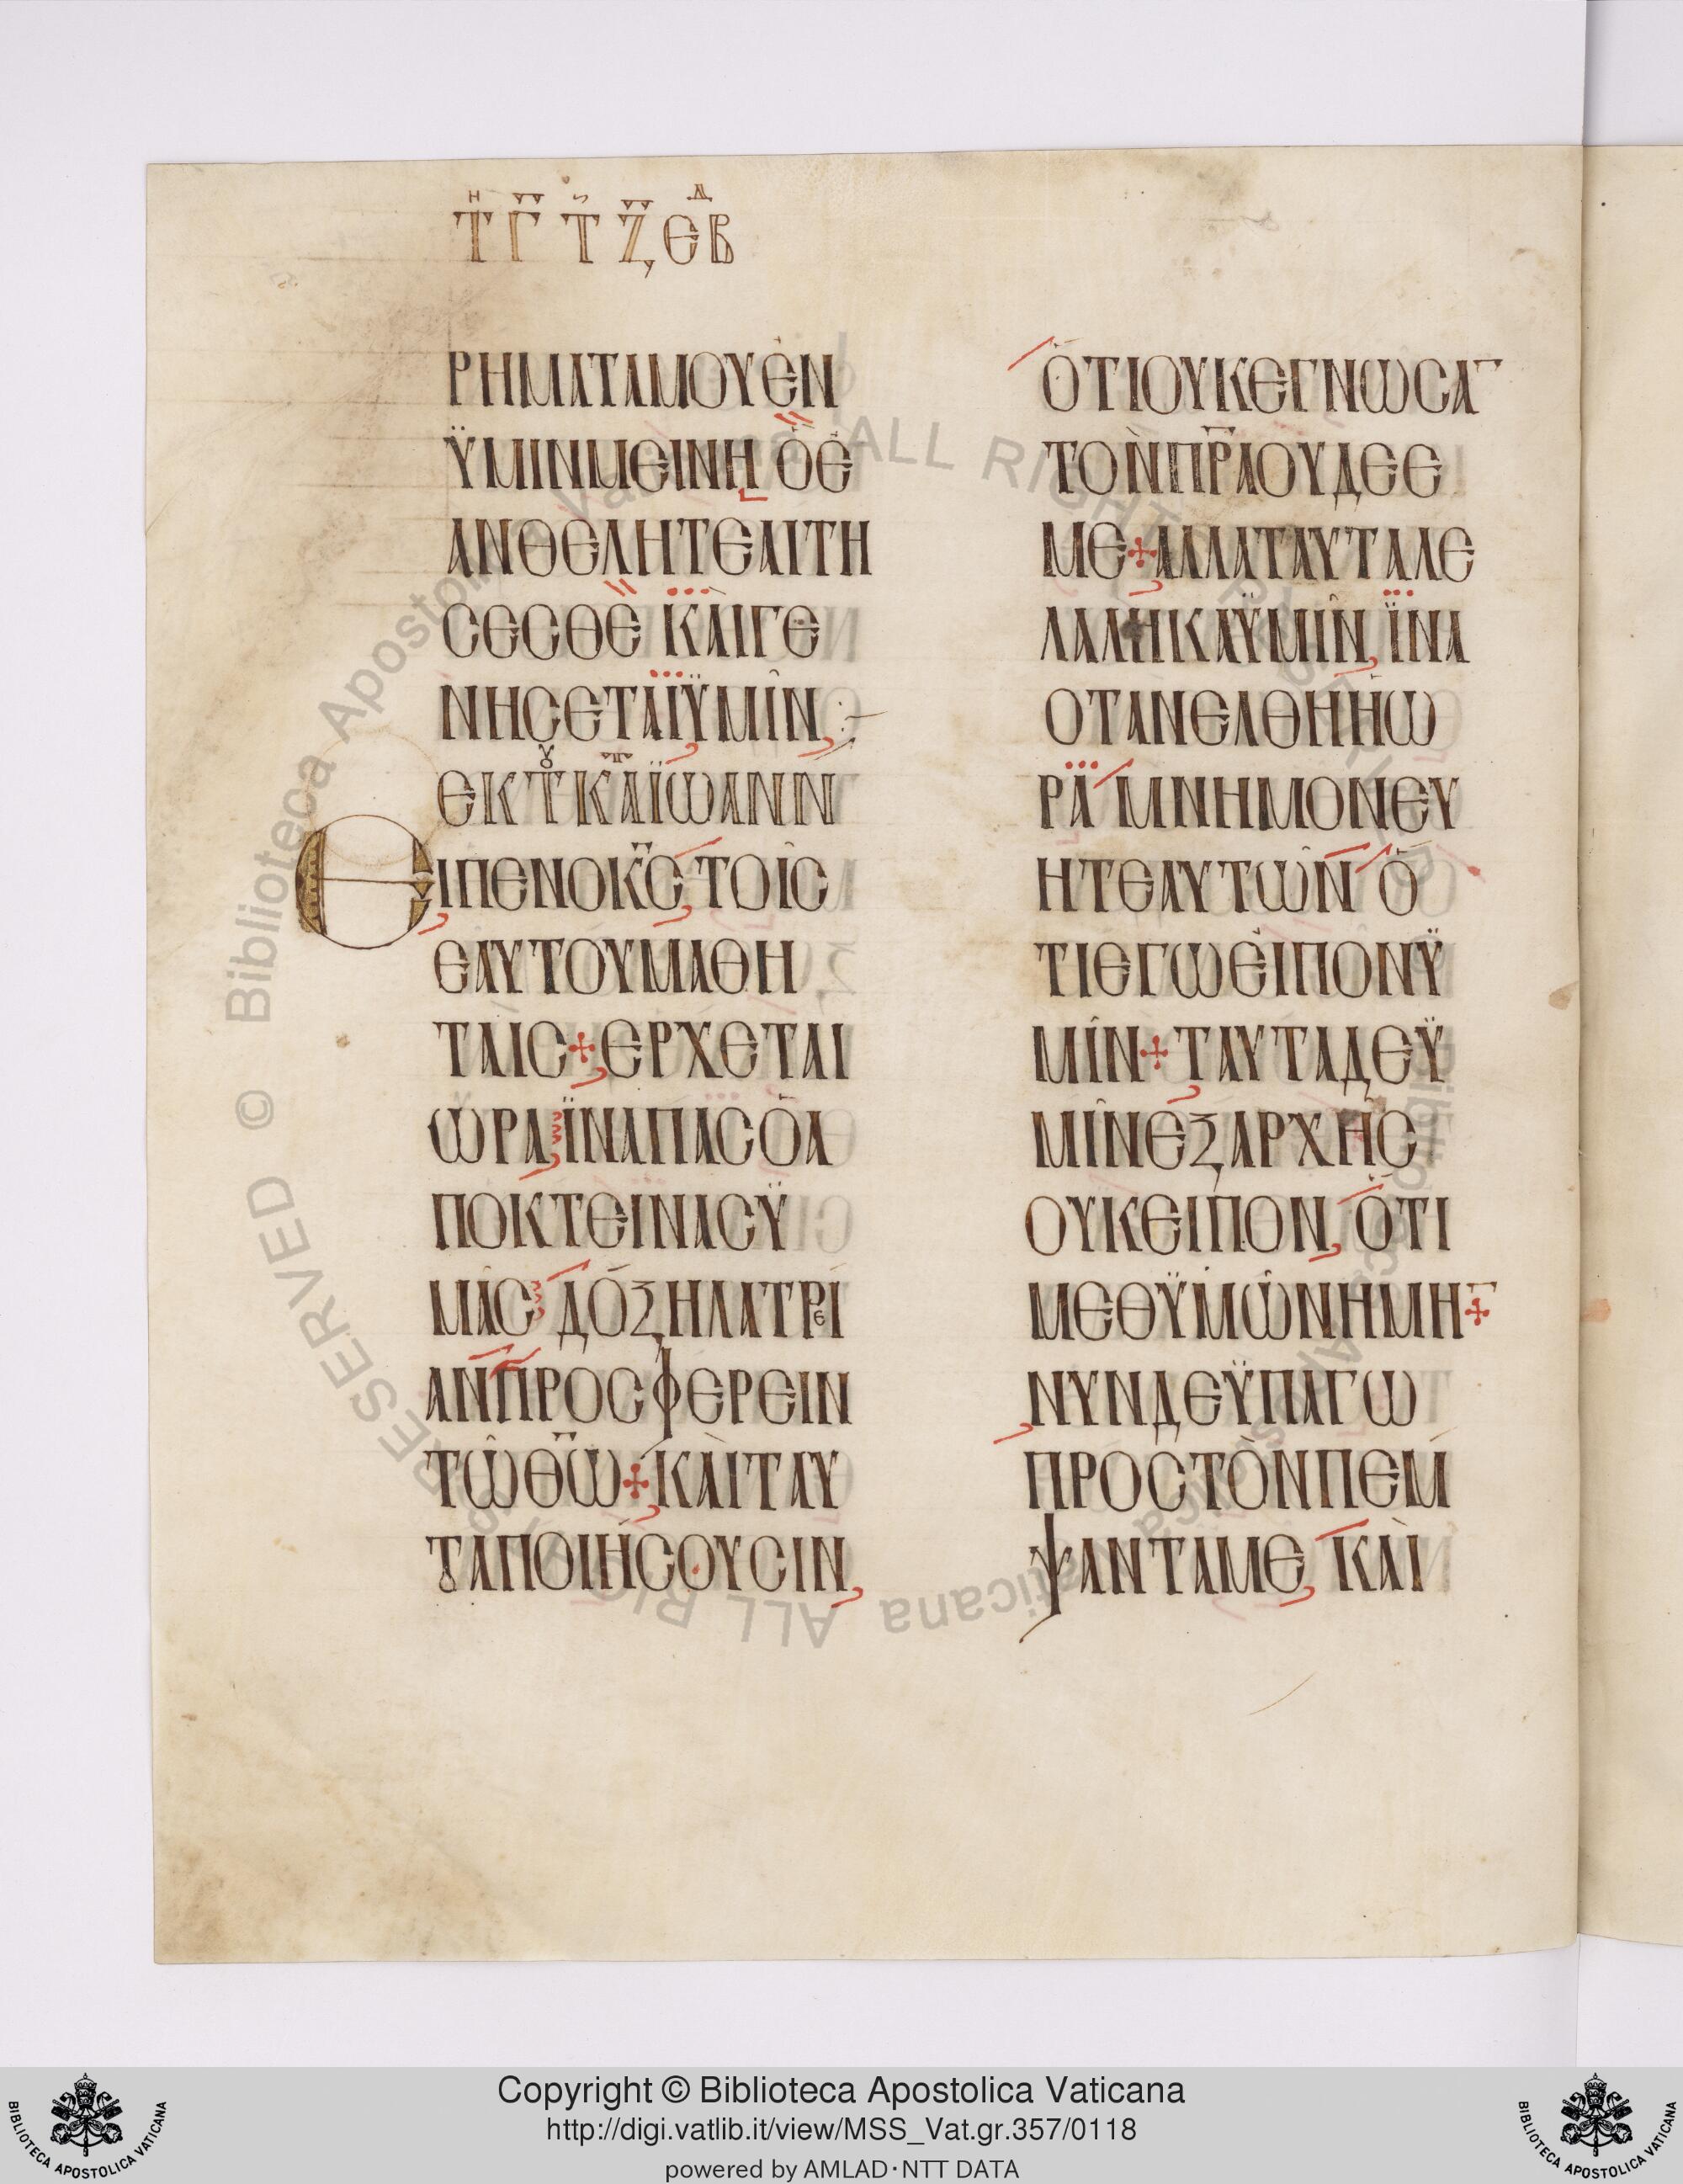 ΤΗ Γ ΤϚ Ζ ΕΔ Β
ΡΗΜΑΤΑΜΟΥΕΝ
ΫΜΙΝΜΕΙΝΗ ΟΕ
ΑΝΘΕΛΗΤΕΑΙΤΗ
ϹΕϹΘΕ ΚΑΙΓΕ
ΝΗϹΕΤΑΙΫΜΙΝ
ΕΚΤȢ ΚΑΤΑΪΩΑΝΝ
ΕΙΠΕΝΟΚϹ ΤΟΙϹ
ΕΑΥΤΟΥΜΑΘΗ
ΤΑΙϹ + ΕΡΧΕΤΑΙ
ΩΡΑ ΪΝΑΠΑϹΟΑ
ΠΟΚΤΕΙΝΑϹΫ
ΜΑϹ ΔΟΞΗΛΑΤΡΕΙ
ΑΝΠΡΟϹΦΕΡΕΙΝ
ΤΩΘΩ + ΚΑΙΤΑΥ
ΤΑΠΟΙΗϹΟΥϹΙΝ
ΟΤΙΟΥΚΕΓΝΩϹΑ¯
ΤΟΝΠΡΑΟΥΔΕΕ
ΜΕ + ΑΛΛΑΤΑΥΤΑΛΕ
ΛΑΛΗΚΑΫΜΙΝ, ΪΝΑ
ΟΤΑΝΕΛΘΗΗΩ
ΡΑ ΜΝΗΜΟΝΕΥ
ΗΤΕΑΥΤΩΝ Ο
ΤΙΕΓΩΕΙΠΟΝΫ
ΜΙΝ + ΤΑΥΤΑΔΕΫ
ΜΙΝΕΞΑΡΧΗϹ
ΟΥΚΕΙΠΟΝ, ΟΤΙ
ΜΕΘΫΜΩΝΗΜΗ¯ +
ΝΥΝΔΕΫΠΑΓΩ
ΠΡΟϹΤΟΝΠΕΜ
ΨΑΝΤΑΜΕ, ΚΑΙ
© Biblioteca Apostolica Vaticana ALL RIGHTS RESERVED
Copyright © Biblioteca Apostolica Vaticana
http://digi.vatlib.it/view/MSS_Vat.gr.357/0118
powered by AMLAD·NTT DATA
BIBLIOTECA APOSTOLICA VATICANA
BIBLIOTECA APOSTOLICA VATICANA